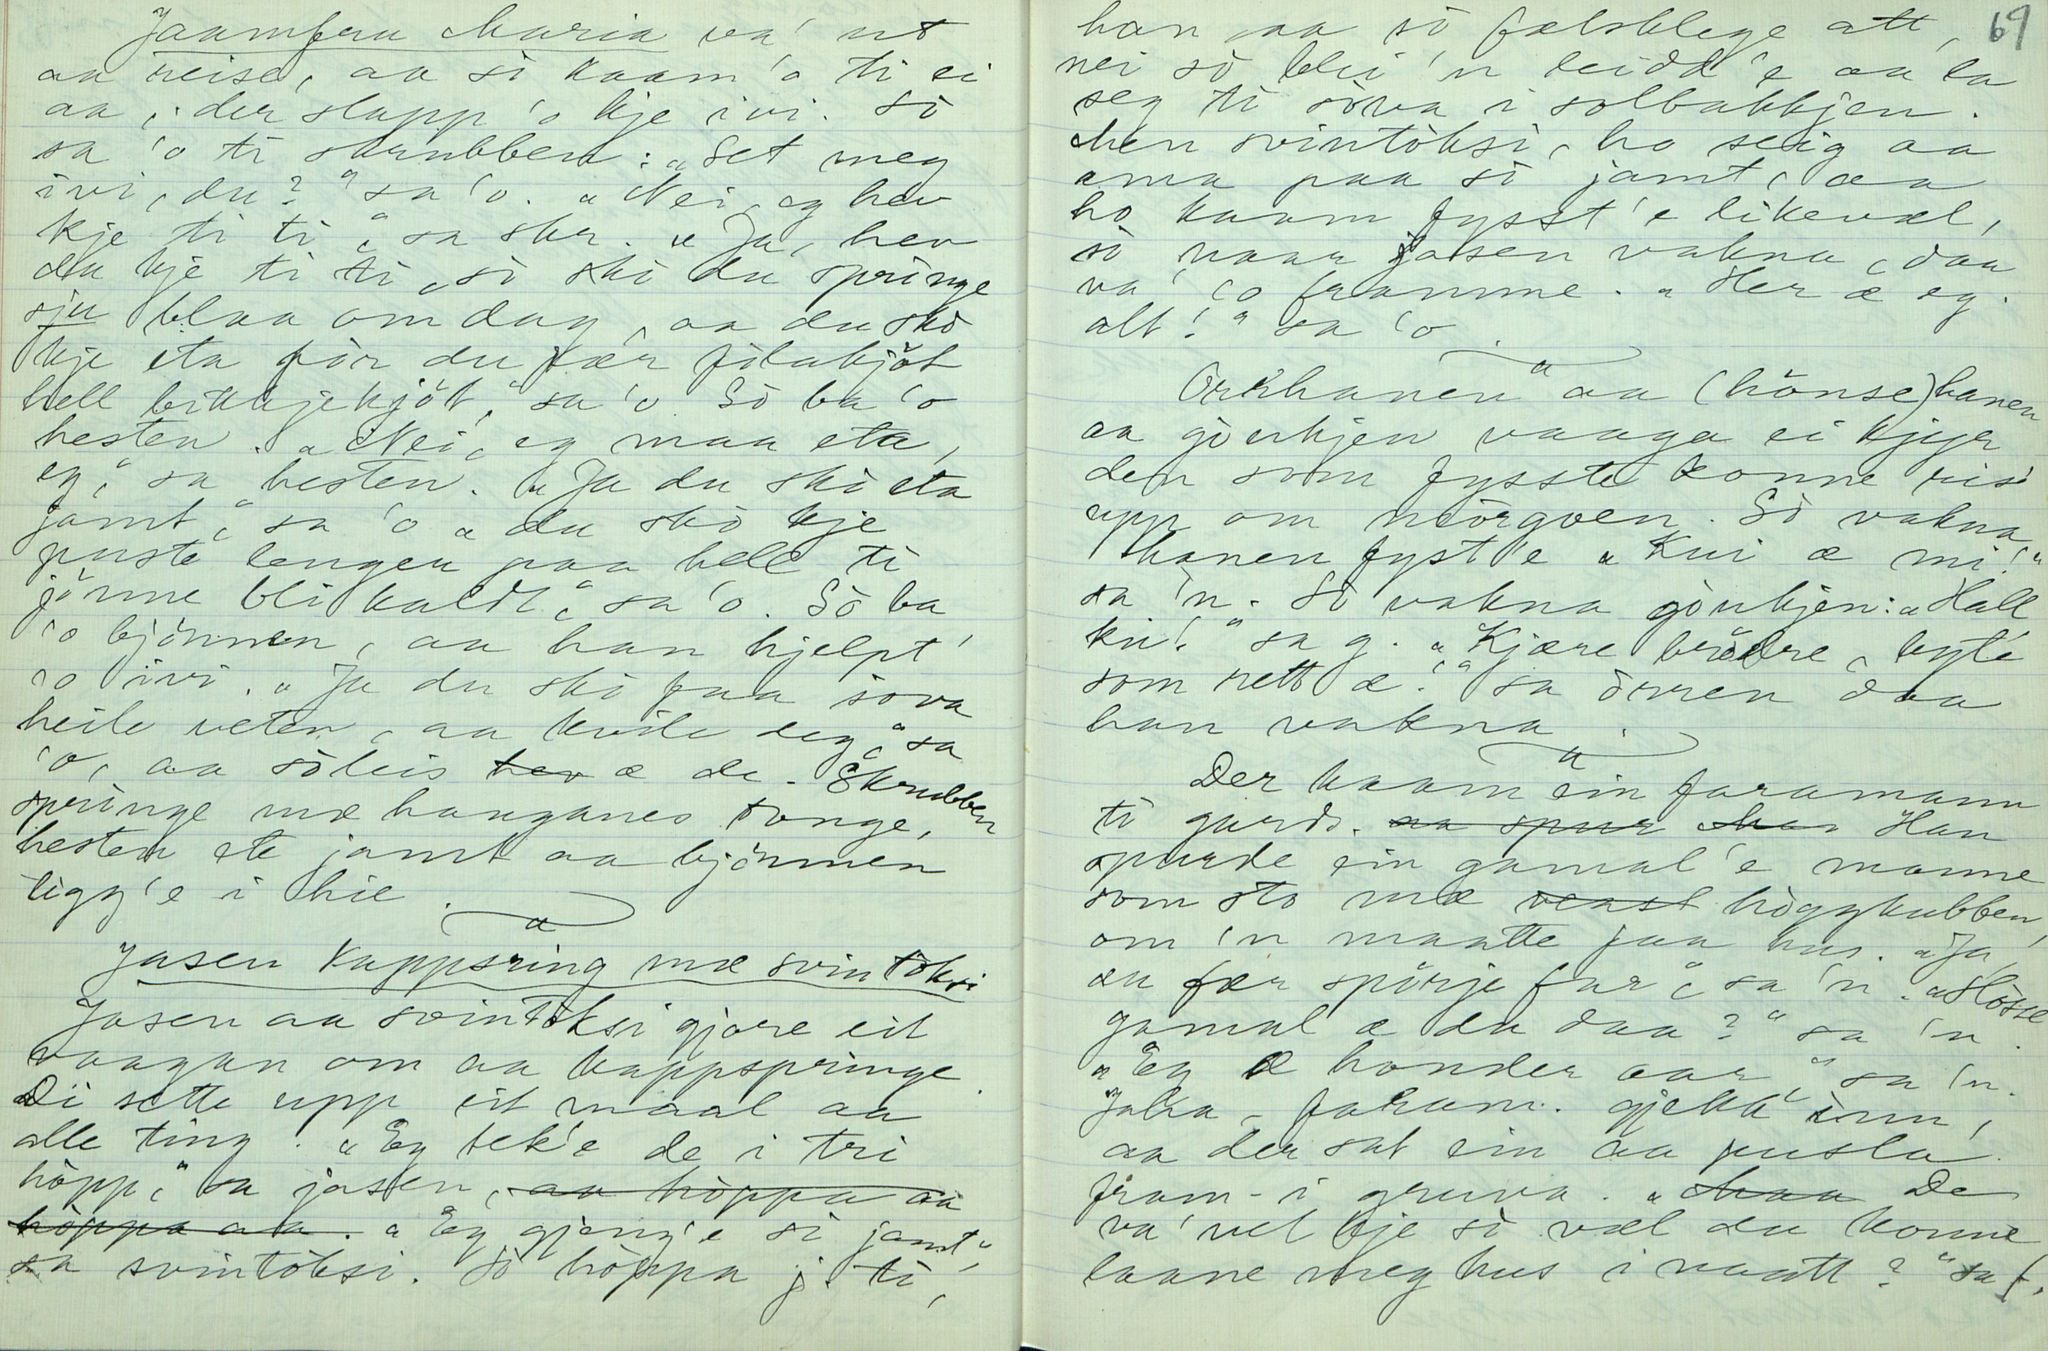 Jaamfru Maria va' ut
aa reise, aa sò kaam'o ti ei
aa, der slapp 'o kje ivi. Sò
sa 'o ti skrubben: „Set meg
ivi, du?" sa 'o. „Nei, eg hev
kje ti ti," sa skr. „Ja, hev
du kje ti ti, sò skò du springe
sju blaa om dag, aa du skò
kje eta fòr du fær folakjöt
hell bikkjekjöt," sa 'o. Sò ba 'o
hesten. „Nei, eg maa eta,
eg," sa hesten. „Ja du skò eta
jamt," sa 'o „du skò kje
puste lenger paa hell ti
jönne bli kaldt," sa 'o. Sò ba
'o bjönnen, aa han hjelpt'
'o ivi. „Ja du skò faa sova
heile veten, aa kvile deg," sa
'o, aa sòleis hev æ de. Skrubben
springe mæ hanganes tonge,
hesten ete jamt aa bjönnen
ligg'e i hie.
Jasen kappspring mæ svintòksi
Jasen aa svintòksi gjore eit
vaagan om aa kappspringe.
Di sette upp eit maal aa
alle ting. „Eg tek'e de i tri
hòpp," sa jasen, aa hòppa aa
hòppa aa. „Eg gjeng'e sò jamt",
sa svintòksi. Sò hòppa j. ti,
han aa sò fælsklege att, 69
nei sò blei 'n leidd'e aa la
seg ti sòva i solbakkjen.
Men svintòksi, ho seig aa
ama paa sò jamt, aa
ho kaam fysst'e likevæl,
sò naar jasen vakna, daa
va' 'o framme. „Her æ eg
alt!" sa 'o.
Orrhanen aa (hönse)hanen
aa gòukjen vaaga ei kjyr
den som fysste konne ris'
upp om mòrgoen. Sò vakna
hanen fyst'e „Kui æ mi!"
sa 'n. Sò vakna gòukjen: „Hall
ku!" sa g. „Kjære brödre, byte
som rett æ!" sa òrren daa
han vakna.
Der kaam ein faramann
ti gards. aa spur han Han
spurde ein gamal'e manne
som sto mæ veast höggkubben,
om 'n maatte faa hus. „Ja,
du fær spörje far," sa 'n. „Hòsse
gamal æ du daa?" sa 'n.
„Eg æ honder aar," sa 'n.
Jaha, faram. gjekk inn,
aa der sat ein aa pusla
fram-i gruva. „Maa De
va' vel kje sò væl du konne
laane meg hus i naatt?" sa f.